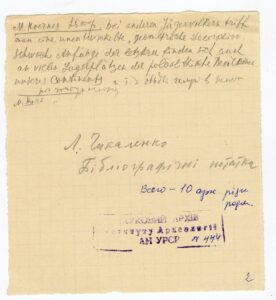 bei anderen Jägervölkern trifft
man eine unentwickelte, geometrische
schwache Anfänge der letzteren finden sich auch
an vielen Lagerplätzen der paläolithische
unseres Continents
Л. Чикаленко
Бібліографічні нотатки
Всего – 10 арк. різн.
розм.
НАУКОВИЙ АРХІВ
Інституту Археології
АН УРСР № 444
2